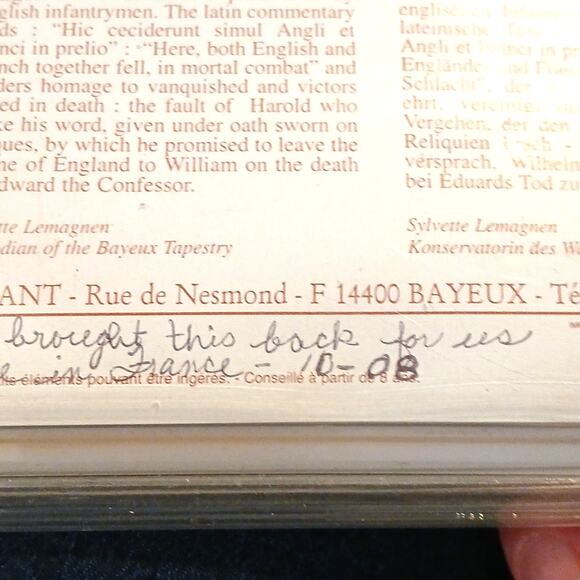 glish infantrymen. The latin commentary
ds : "Hic ceciderunt simul Angli et
nci in prelio" : "Here, both English and
nch together fell, in mortal combat" and
ders homage to vanquished and victors
ed in death : the fault of Harold who
ke his word, given under oath sworn on
ques, by which he promised to leave the
ne of England to William on the death
dward the Confessor.
tte Lemagnen
dian of the Bayeux Tapestry
englische
lateinische
Angli et Franci in pr
Engländer und
Schlacht", der
ehrt, vereinigt
Vergehen, der den
Reliquien
versprach, Wilhelm
bei Eduards Tod zu
Sylvette Lemagnen
Konservatorin des W
ANT - Rue de Nesmond - F 14400 BAYEUX - Té
brought this back for us
e in France - 10-08
its éléments pouvant être ingérés. - Conseillé à partir de 8 ans.